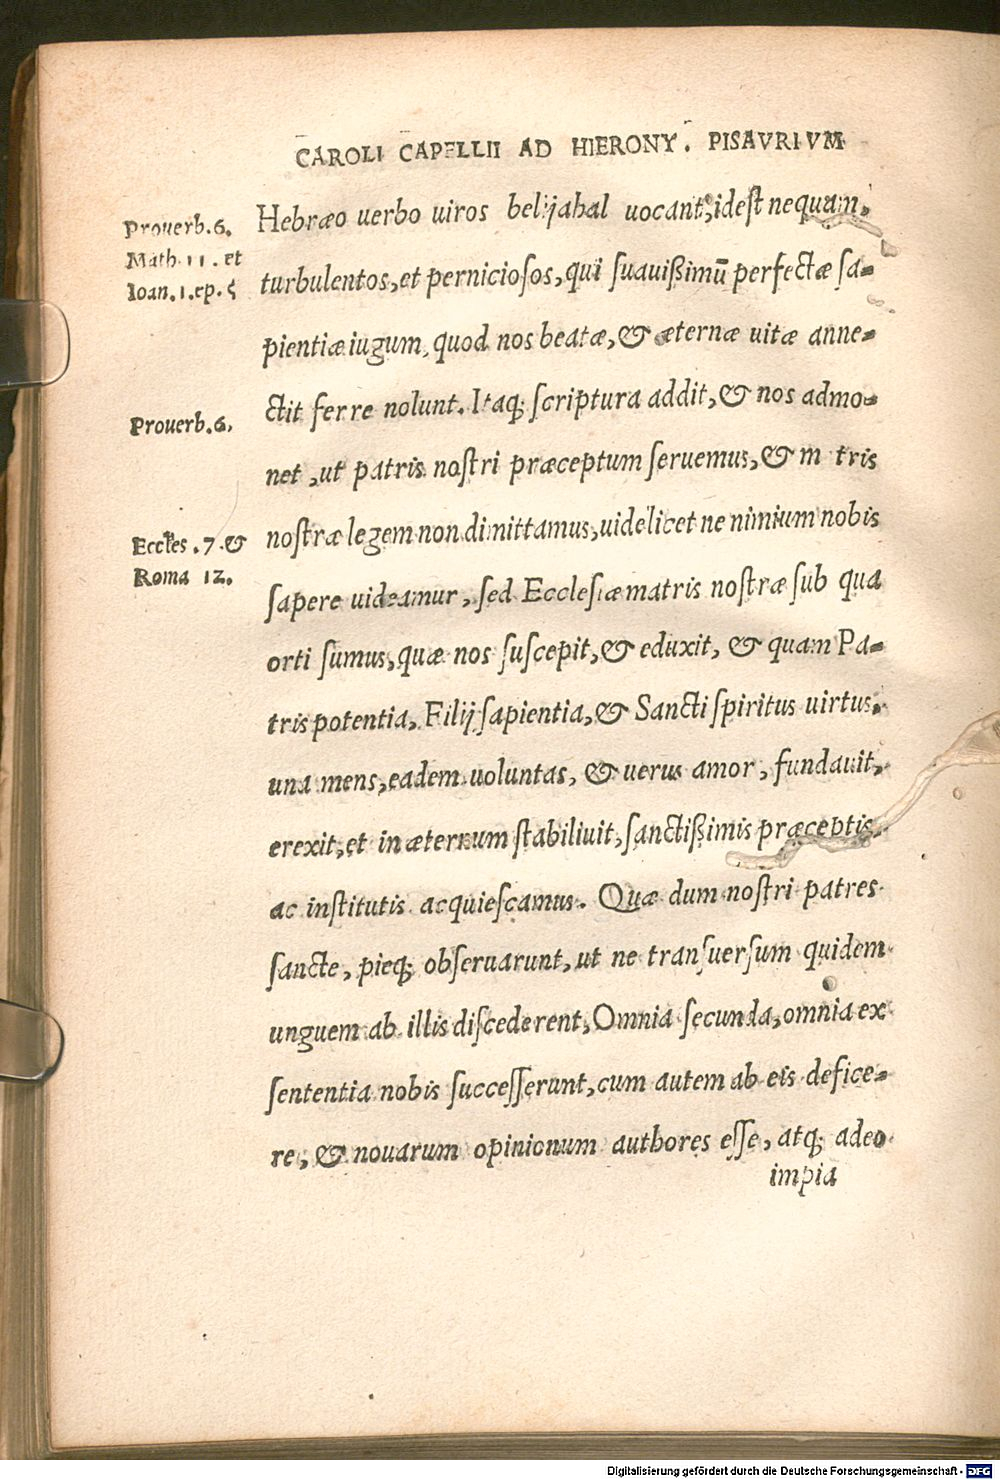 CAROLI CAPELLII AD HIERONY. PISAVRIVM
Prouerb.6.
Math 11. et
Ioan.1.ep.5
Prouerb.6.
Eccles.7.&
Roma 12.
Hebræo uerbo uiros belijahal uocant, idest nequam,
turbulentos, et perniciosos, qui suauißimū perfectæ sa-
pientiæ iugum, quod nos beatæ, & æternæ uitæ anne-
ctit ferre nolunt. Itaq; scriptura addit, & nos admo-
net, ut patris nostri præceptum seruemus, & m tris
nostræ legem non dimittamus, uidelicet ne nimium nobis
sapere uideamur, sed Ecclesiæ matris nostræ sub qua
orti sumus, quæ nos suscepit, & eduxit, & quam Pa-
tris potentia, Filij sapientia, & Sancti spiritus uirtus,
una mens, eadem uoluntas, & uerus amor, fundauit,
erexit, et in æternum stabiliuit, sanctißimis præceptis,
ac institutis acquiescamus. Quæ dum nostri patres
sancte, pieq; obseruarunt, ut ne transuersum quidem
unguem ab illis discederent, Omnia secunda, omnia ex
sententia nobis successerunt, cum autem ab eis defice-
re, & nouarum opinionum authores esse, atq; adeo
impia
Digitalisierung gefördert durch die Deutsche Forschungsgemeinschaft - DFG